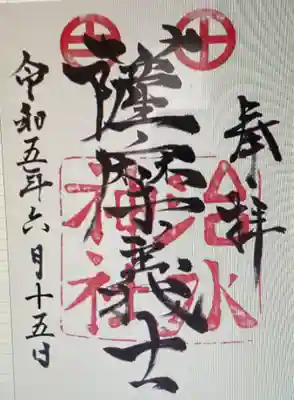 奉拝
薩摩義士
治水神社
令和五年六月十五日